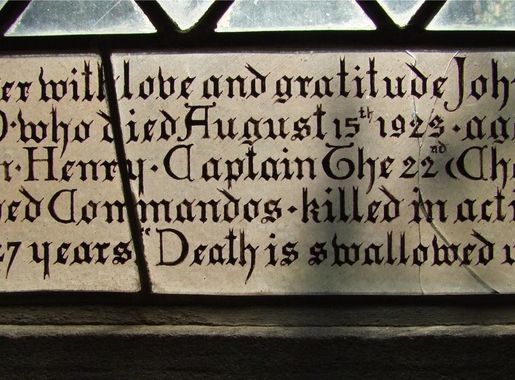 er with love and gratitude Joh
D·who died August 15th 1923·ag
n·Henry·Captain The 22nd (Che
ed Commandos·killed in acti
27 years "Death is swallowed u